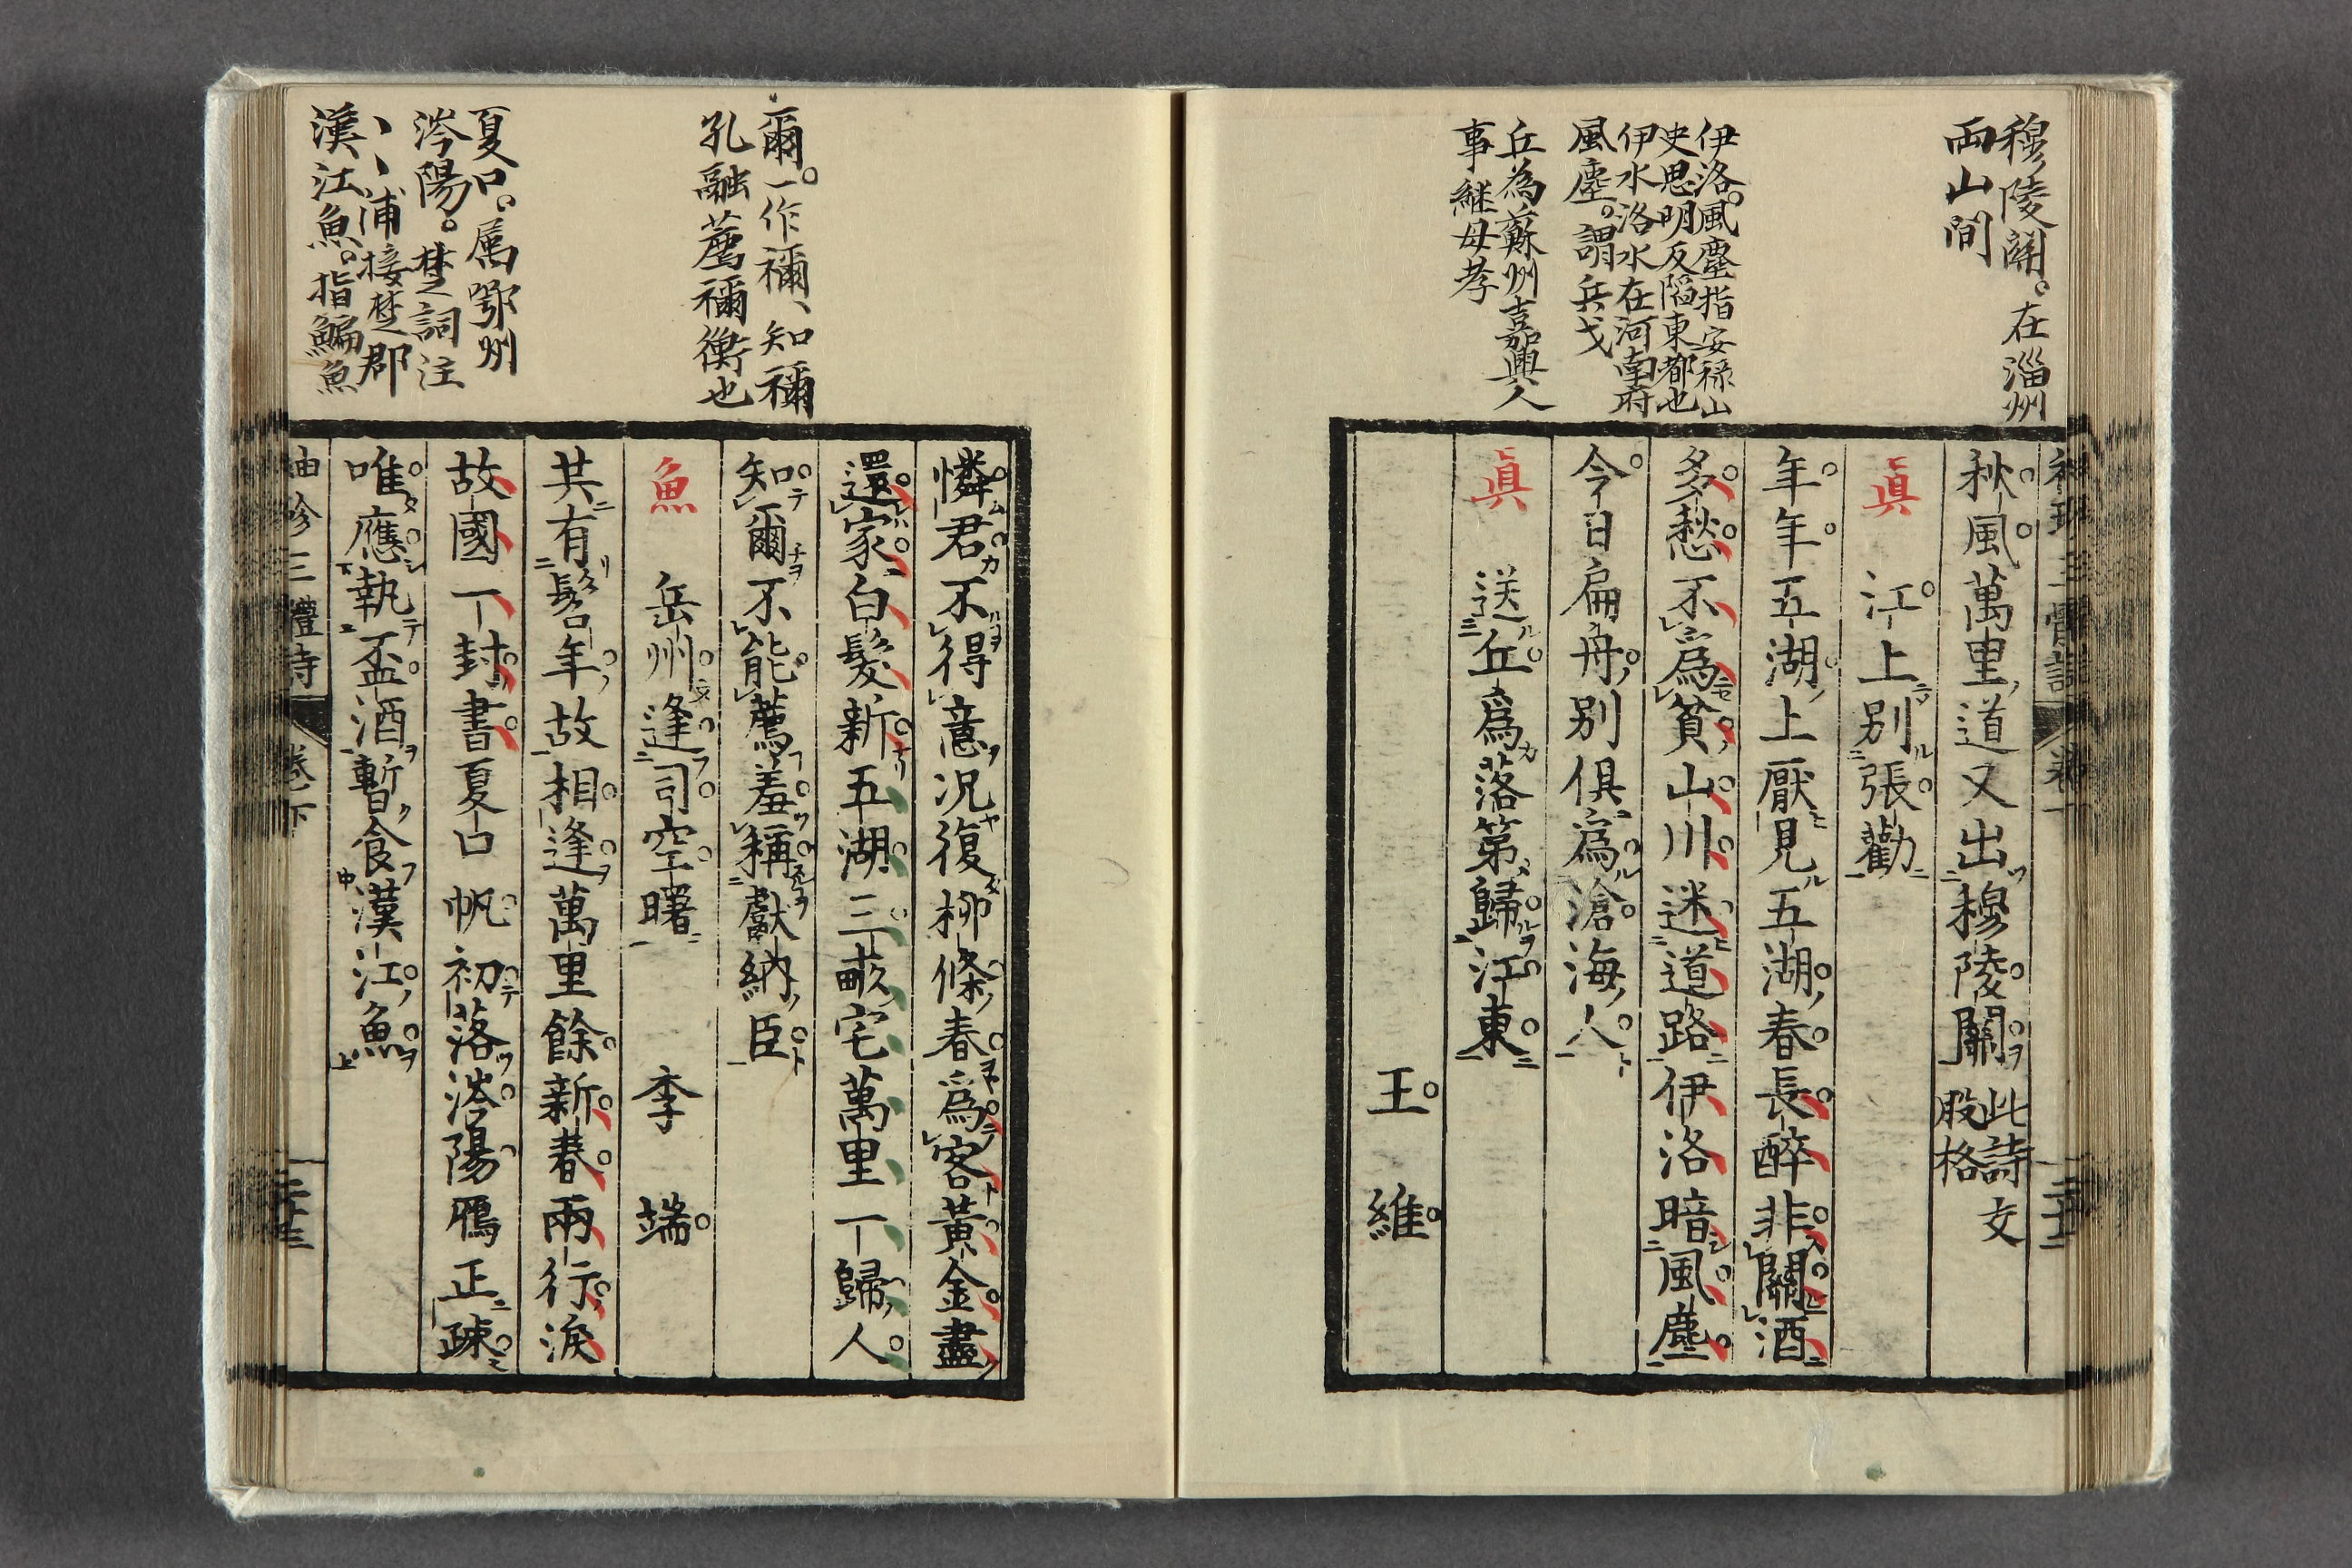 穆陵關。在淄州
両山間
伊洛。風塵指安祿山
史思明反陷東都也
伊水洛水在河南府
風塵。謂兵戈
丘為蘇州嘉興人
事継母孝
秋風萬里道又出穆陵關
此詩文
股格
眞 江上別張勸
年年五湖上厭見五湖春長醉非關酒
多愁不爲貧山川迷道路伊洛暗風塵
今日扁舟別俱爲滄海人
眞 送丘爲落第歸江東
王維
爾。一作禰、知禰
孔融薦禰衡也
夏口。属鄂州
涔陽。楚詞注
丶丶浦接楚郡
漢江魚。指鯿魚
憐君不得意况復柳條春爲客黃金盡
還家白髮新五湖三畝宅萬里一歸人
知爾不能薦羞稱獻納臣
魚 岳州逢司空曙 李端
共有髫年故相逢萬里餘新春兩行淚
故國一封書夏口帆初落涔陽鴈正疎
唯應執盃酒暫食漢江魚
袖珍三體詩 卷下 三十三